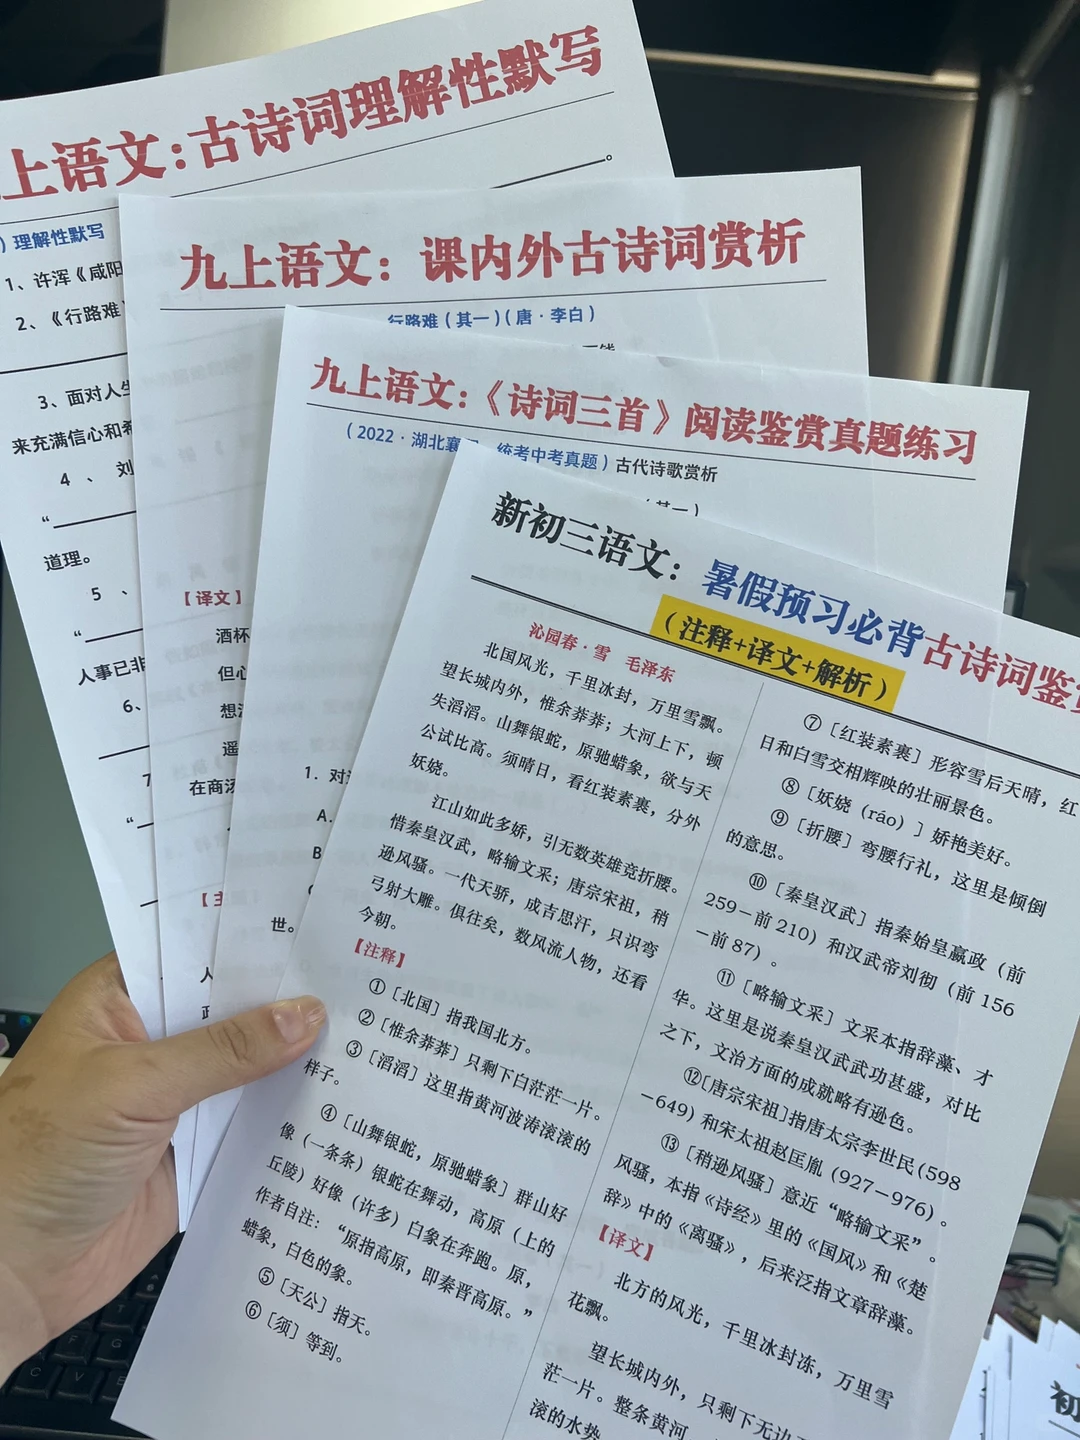 上语文：古诗词理解性默写
。
）理解性默写
1、许浑《咸阳
2、《行路难
3、面对人生
来充满信心和希
4、刘
“
道理。
5、
“
人事已非
6、
7
“
九上语文：课内外古诗词赏析
行路难（其一）（唐·李白）
【译文】
酒杯
但心
想
遥
在商汤
【主
人
九上语文：《诗词三首》阅读鉴赏真题练习
（2022·湖北襄 统考中考真题）古代诗歌赏析
（其一）
1. 对
A.
B
世。
新初三语文：暑假预习必背古诗词鉴赏
（注释+译文+解析）
沁园春·雪 毛泽东
北国风光，千里冰封，万里雪飘。
望长城内外，惟余莽莽；大河上下，顿
失滔滔。山舞银蛇，原驰蜡象，欲与天
公试比高。须晴日，看红装素裹，分外
妖娆。
江山如此多娇，引无数英雄竞折腰。
惜秦皇汉武，略输文采；唐宗宋祖，稍
逊风骚。一代天骄，成吉思汗，只识弯
弓射大雕。俱往矣，数风流人物，还看
今朝。
【注释】
①［北国］指我国北方。
②［惟余莽莽］只剩下白茫茫一片。
③［滔滔］这里指黄河波涛滚滚的
样子。
④［山舞银蛇，原驰蜡象］群山好
像（一条条）银蛇在舞动，高原（上的
丘陵）好像（许多）白象在奔跑。原，
作者自注：“原指高原，即秦晋高原。”
蜡象，白色的象。
⑤［天公］指天。
⑥［须］等到。
⑦［红装素裹］形容雪后天晴，红
日和白雪交相辉映的壮丽景色。
⑧［妖娆（ráo）］娇艳美好。
⑨［折腰］弯腰行礼，这里是倾倒
的意思。
⑩［秦皇汉武］指秦始皇嬴政（前
259－前 210）和汉武帝刘彻（前 156
－前 87）。
⑪［略输文采］文采本指辞藻、才
华。这里是说秦皇汉武武功甚盛，对比
之下，文治方面的成就略有逊色。
⑫［唐宗宋祖］指唐太宗李世民（598
－649）和宋太祖赵匡胤（927－976）。
⑬［稍逊风骚］意近“略输文采”。
风骚，本指《诗经》里的《国风》和《楚
辞》中的《离骚》，后来泛指文章辞藻。
【译文】
北方的风光，千里冰封冻，万里雪
花飘。
望长城内外，只剩下无边
茫一片。整条黄河
滚的水势
初